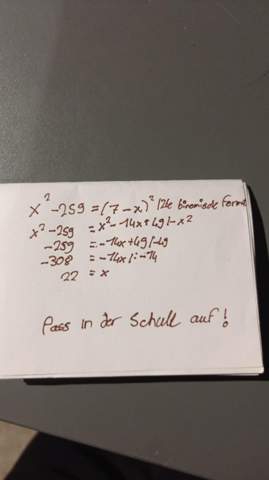 x² -259 = (7 - x)² |2te binomische Formel
x² -259 = x² - 14x + 49 |- x²
-259 = -14x + 49 |-49
-308 = -14x |: -14
22 = x
Pass in der Schule auf!